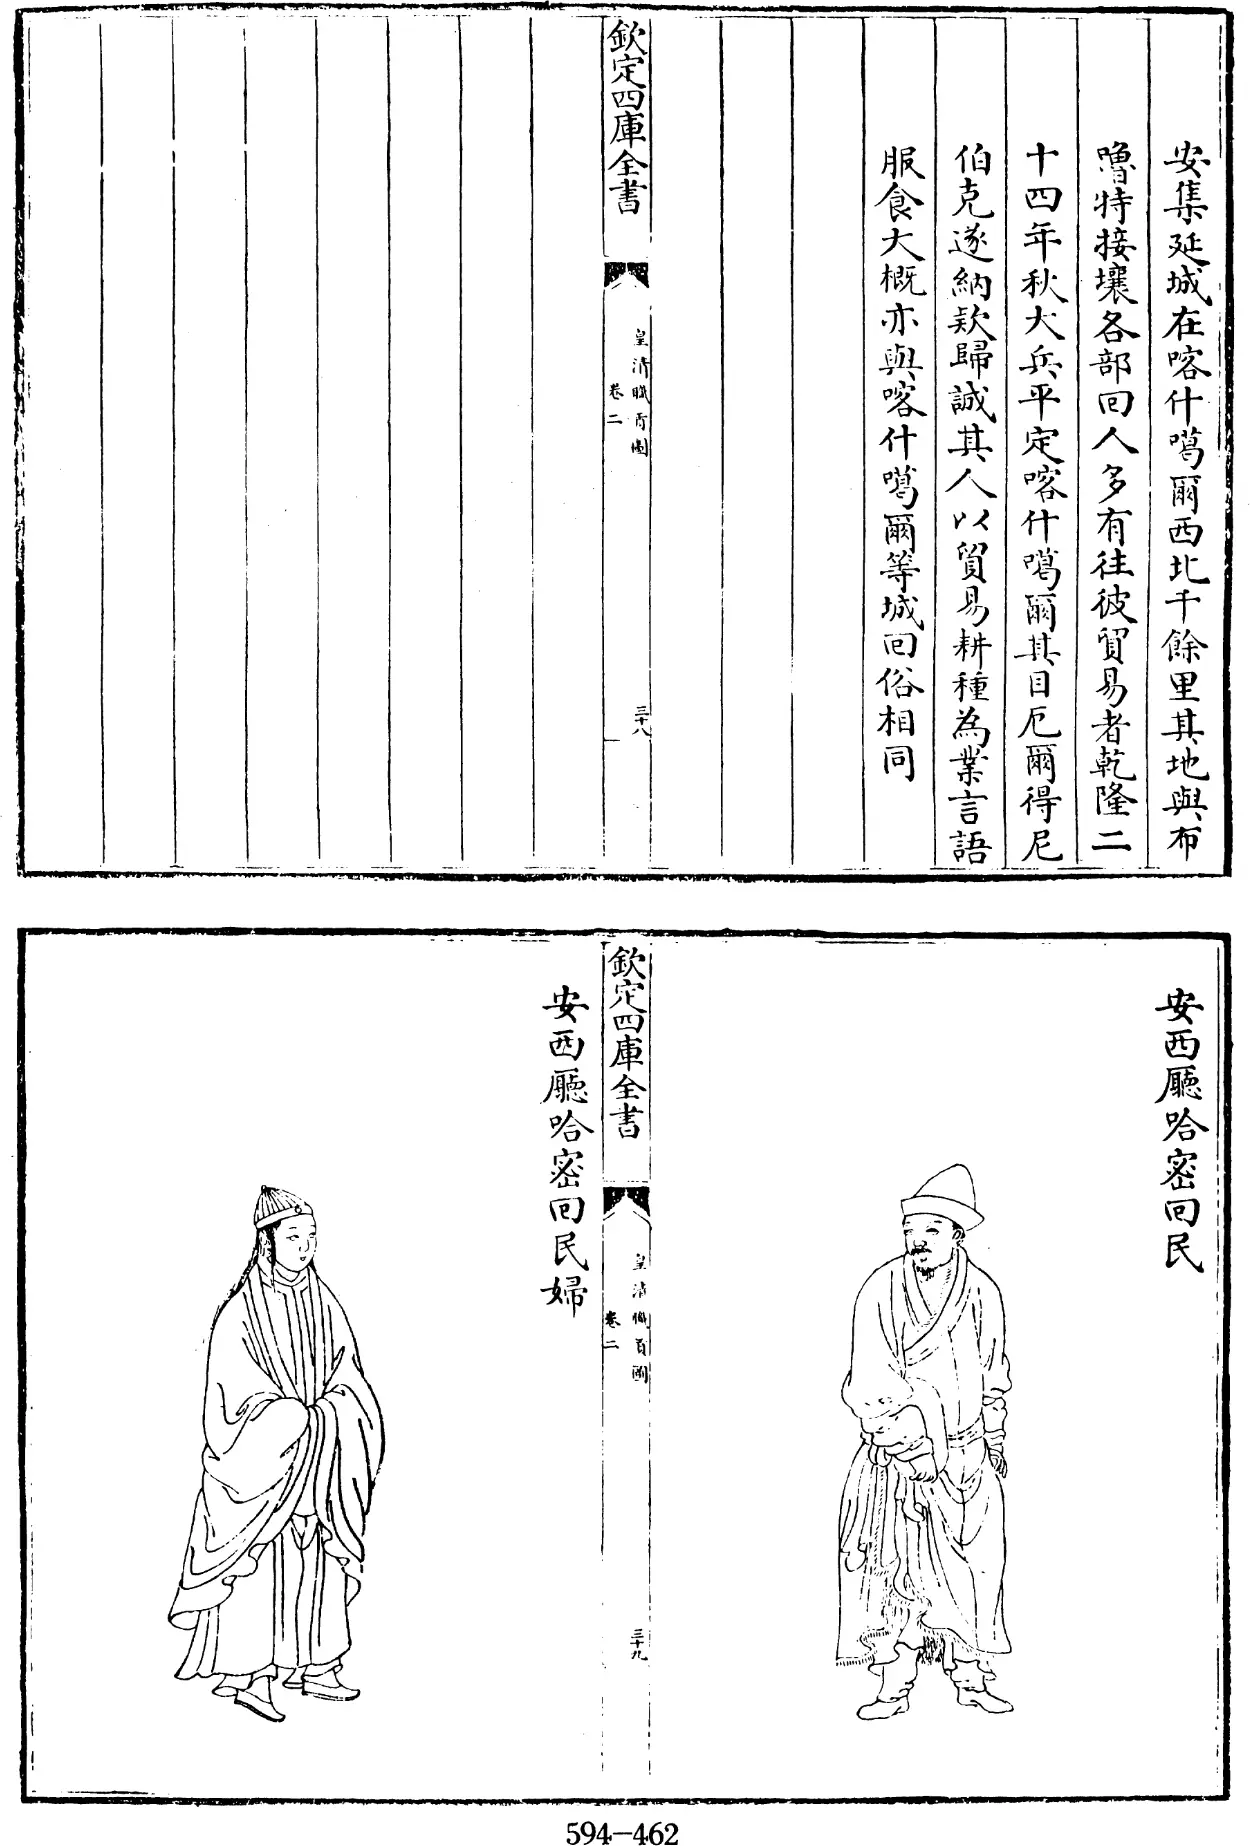 安集延城在喀什噶爾西北千餘里其地與布
嚕特接壤各部回人多有往彼貿易者乾隆二
十四年秋大兵平定喀什噶爾其目厄爾得尼
伯克遂納欵歸誠其人以貿易耕種為業言語
服食大概亦與喀什噶爾等城回俗相同
欽定四庫全書
皇清職貢圖
卷二
三十八
安西廳哈密回民
欽定四庫全書
皇清職貢圖
卷二
三十九
安西廳哈密回民婦
594-462